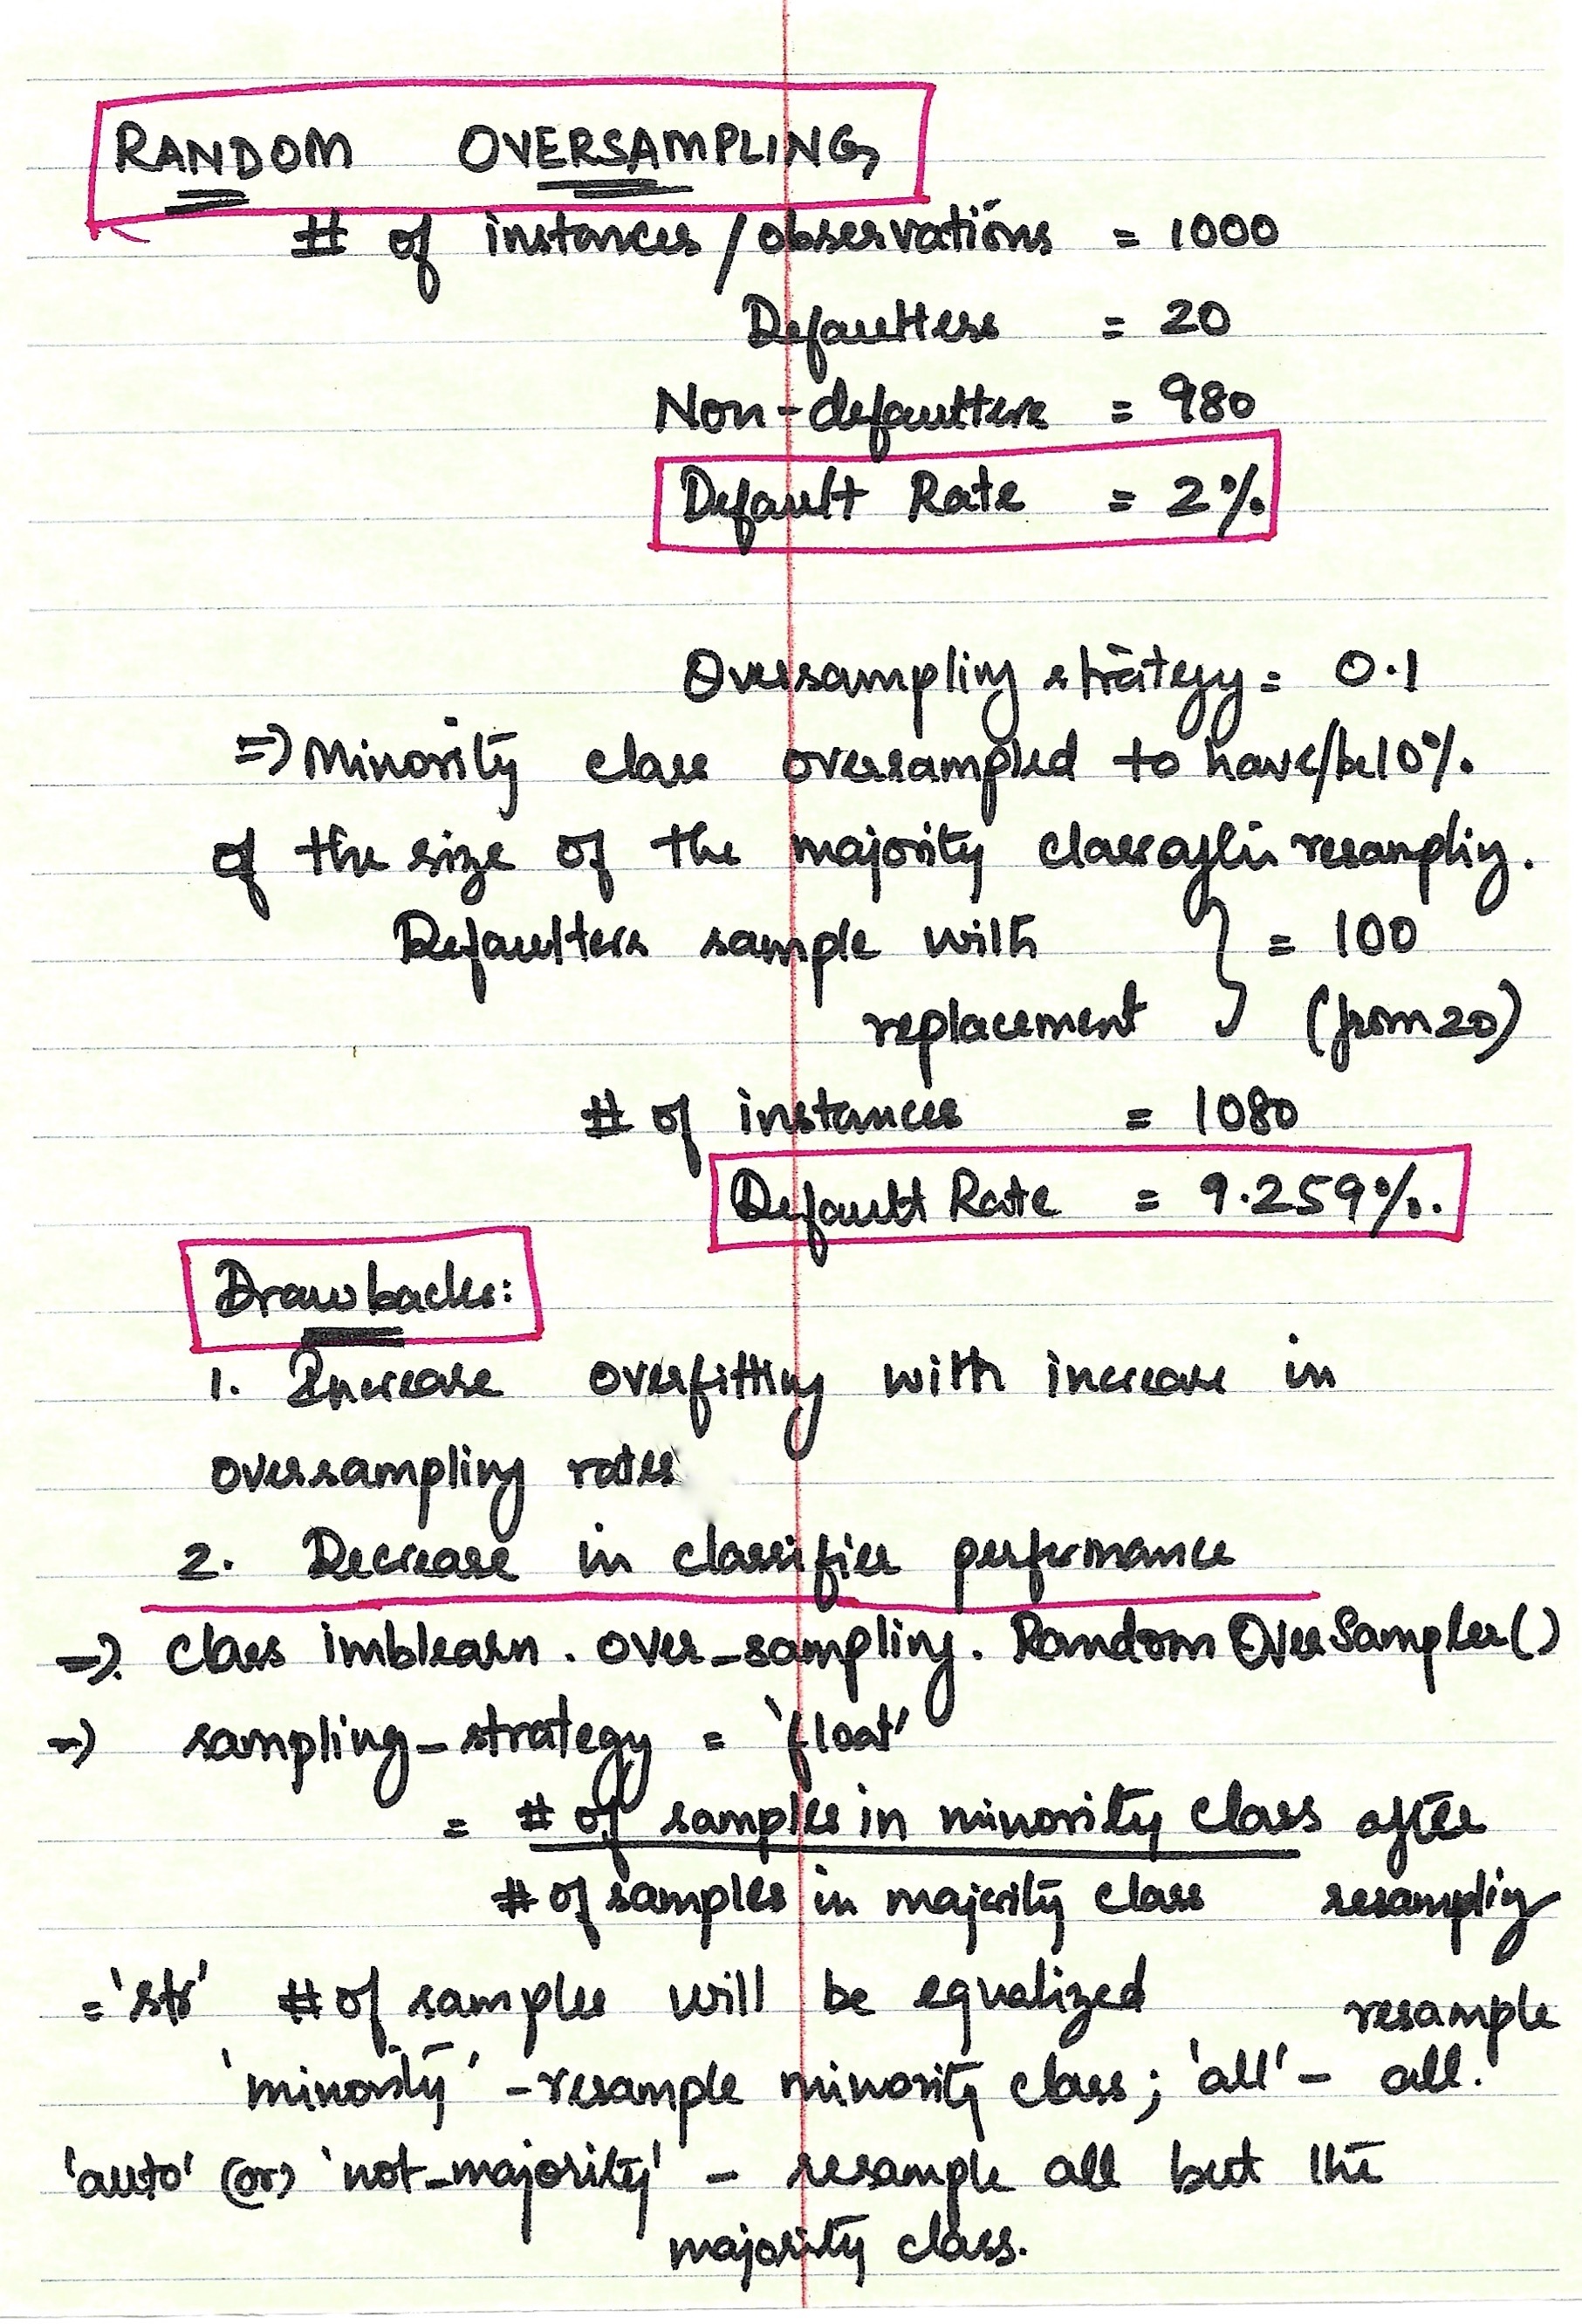 RANDOM OVERSAMPLING
# of instances / observations = 1000
Defaulters = 20
Non-defaulters = 980
Default Rate = 2%.
Oversampling strategy = 0.1
=> Minority class oversampled to have/be 10%.
of the size of the majority class after resampling.
Defaulters sample with } = 100
replacement (from 20)
# of instances = 1080
Default Rate = 9.259%.
Drawbacks:
1. Increase overfitting with increase in
oversampling rates
2. Decrease in classifier performance
=> class imblearn.over_sampling.RandomOverSampler()
=> sampling_strategy = 'float'
= # of samples in minority class after
# of samples in majority class resampling
= 'str' # of samples will be equalized resample
'minority' - resample minority class; 'all' - all.
'auto' (or) 'not_majority' - resample all but the
majority class.